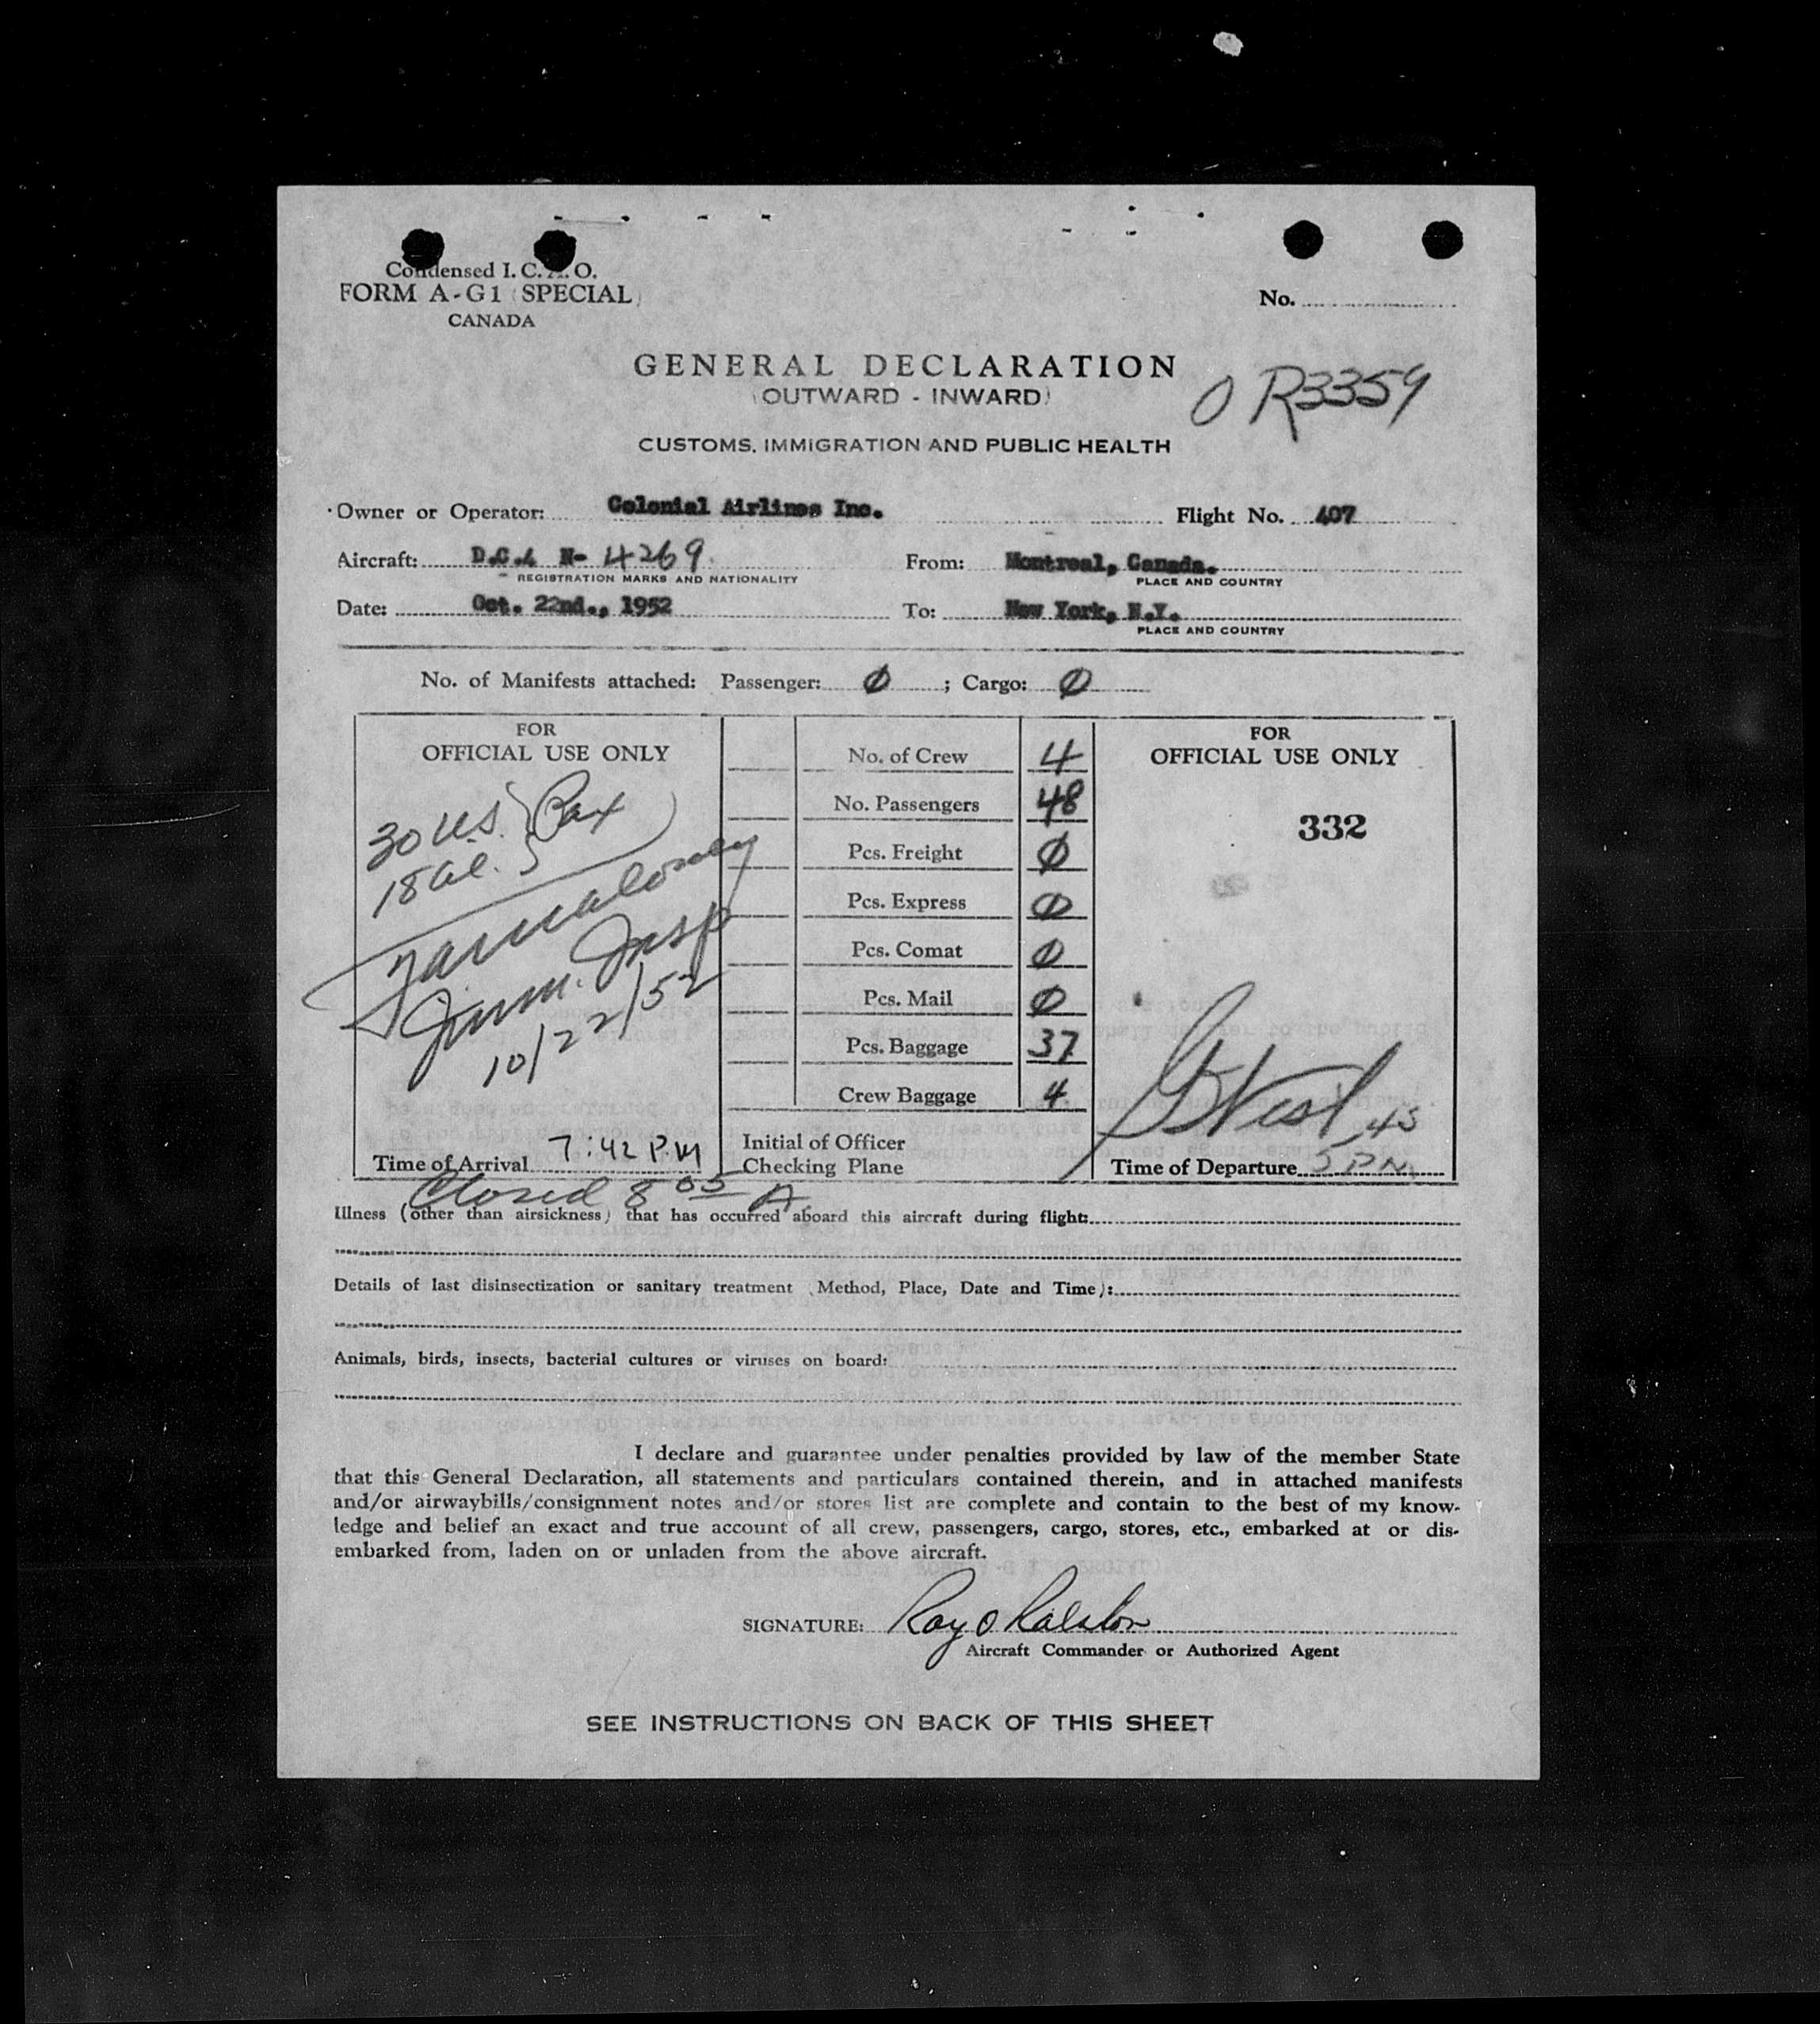 Condensed I. C. A. O.
FORM A-G1 (SPECIAL)
CANADA
No.
GENERAL DECLARATION
(OUTWARD - INWARD)
O R3359
CUSTOMS, IMMIGRATION AND PUBLIC HEALTH
Owner or Operator: Colonial Airlines Inc. Flight No. 407
Aircraft: D.C.4 N- 4269 From: Montreal, Canada.
REGISTRATION MARKS AND NATIONALITY PLACE AND COUNTRY
Date: Oct. 22nd., 1952 To: New York, N.Y.
PLACE AND COUNTRY
No. of Manifests attached: Passenger: Ø ; Cargo: Ø
FOR
OFFICIAL USE ONLY
30 U.S. } Pax
18 al.
Imm. Insp
10/22/52
Time of Arrival 7:42 P.M
No. of Crew 4
No. Passengers 48
Pcs. Freight Ø
Pcs. Express Ø
Pcs. Comat Ø
Pcs. Mail Ø
Pcs. Baggage 37
Crew Baggage 4
Initial of Officer
Checking Plane
FOR
OFFICIAL USE ONLY
332
Time of Departure 5 45 PM
Closed 8 05 A
Illness (other than airsickness) that has occurred aboard this aircraft during flight:
Details of last disinsectization or sanitary treatment (Method, Place, Date and Time):
Animals, birds, insects, bacterial cultures or viruses on board:
I declare and guarantee under penalties provided by law of the member State
that this General Declaration, all statements and particulars contained therein, and in attached manifests
and/or airwaybills/consignment notes and/or stores list are complete and contain to the best of my know-
ledge and belief an exact and true account of all crew, passengers, cargo, stores, etc., embarked at or dis-
embarked from, laden on or unladen from the above aircraft.
SIGNATURE: Ray O Ralston
Aircraft Commander or Authorized Agent
SEE INSTRUCTIONS ON BACK OF THIS SHEET